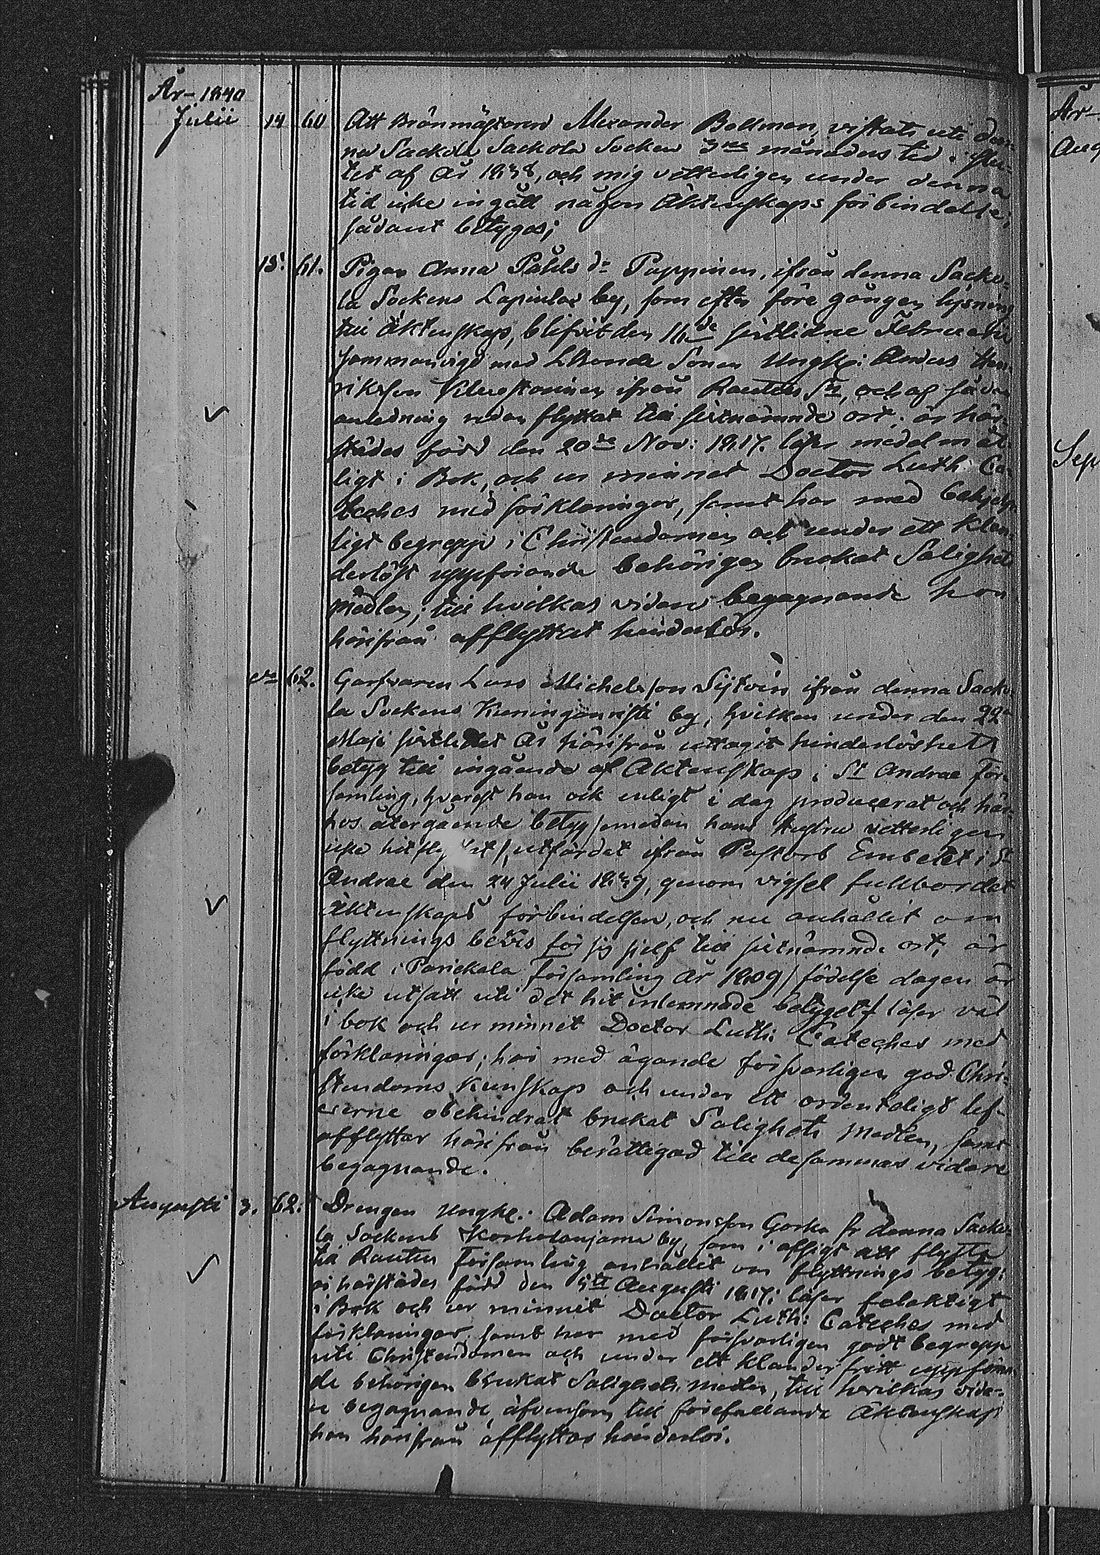 År 1840
Julii 14 60 Att Brånmästaren Alexander Bellman, vistats uti den-
na Sackola Sackola Socken 3ne månaders tid i
tet af år 1838, och mig vetterligen under denna
tid icke ingått någon Äktenskaps förbindelse;
sådant betygas;
15. 61. Pigan Anna Påhls dr Puppinen, ifrån denna Sacko-
la Sockens Lapinlax by, som efter före gången lysning
till Äktenskap, blifvit den 11de sistlidne Februarii
sammanvigd med Bonde Sonen Ungk: Anders Hen-
riksson ifrån Rautus Sn, och af sådan
anledning redan flyttat till sistnämnde ort, är här-
städes född den 20de Nov: 1817. läser medelmåt-
ligt i Bok, och ur minnet Doctor Luth: Ca-
teches med förklaringar, samt har med
ligt begrepp i Christendomen och under ett klan-
derlöst uppförande behörigen brukat Salighets
Medlen; till hvilkas vidare begagnande hon
härifrån afflyttat hinderlös.
62. Garfvaren Lars Michelsson Sytvin ifrån denna Sacko-
la Sockens by, hvilken under den 22
Maji sistledet År härifrån uttagit hinderlöshets
betyg till ingående af Äktenskap i St Andrae För-
samling, hvarest han ock enligt i dag producerat och här-
hos återgående betyg /emedan hans Hustru vetterligen
icke hitflyttat/, utfärdet ifrån Pastors Embetet i St
Andrae den 24 Julii 1839, genom vigsel fullbordat
Äktenskaps förbindelsen, och nu anhållit om
flyttnings bevis för sig sjelf till sistnämnde ort, är
född i Parickala Församling År 1809 / födelse dagen är
icke utsatt uti det hit inlemnade betyget / läser väl
i bok och ur minnet Doctor Luth: Cateches med
förklaringar; har med ägande försvarligen god Chri-
stendoms Kunskap och under ett ordentligt lef-
verne obehindrat brukat Salighets Medlen, samt
afflyttar härifrån berättigad till desammas vidare
begagnande.
Augusti 3. 62. Drengen Ungk: Adam Simonsson Gorka fr denna Sacko-
la Sockens Korholansama by, som i afsigt att flytta
till Rautus Församling anhållit om flyttnings betyg;
är härstädes född den 5te Augusti 1817; läser felaktigt
i Bok och ur minnet Doctor Luth: Cateches med
förklaringar, samt har med försvarligen godt begrepp
uti Christendomen och under ett klander fritt uppföran-
de behörigen brukat Salighets medlen, till hvilkas vida-
re begagnande, äfvensom till förefallande Äktenskap
han härifrån afflyttar hinderlös.
År
Aug
Sep